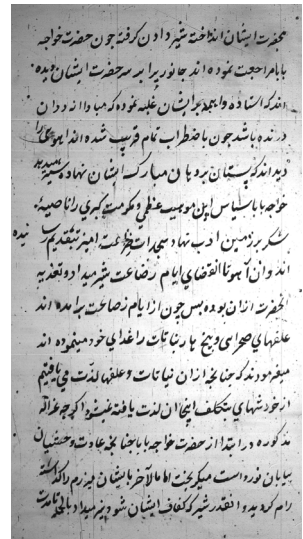 بحضرت ایشان انداخته شیر دادن گرفته چون حضرت خواجه
بابا مراجعت نموده اند جانور برابر سر حضرت ایشان دیده
اند که استاده واهمه بر ایشان غلبه نموده که مبادا از ددان
درنده باشد چون باضطراب تمام قریب شده اند آهوئی را
دیده اند که پستان بر دهان مبارک ایشان نهاده شیر میدهد
خواجه بابا سپاس این موهبت عظمی و مکرمت کبری را ناصیه
شکر بر زمین ادب نهاد سجدات بتقدیم رسانیده
اند و آن آهو تا انقضای ایام رضاعت شیر میداد و تغذیه
آنحضرت از ان بوده پس چون از ایام رضاعت برآمده اند
علفهای صحرای و بیخ بار نباتات را غذای خود مینموده اند
میفرمودند که چنانچه از ان نباتات و علفها لذت می یافتیم
از خورشهای متکلف اینجا آن لذت یافته نمیشود اگرچه غزاله
مذکوره در ابتدا از حضرت خواجه بابا چنانچه عادت وحشیان
بیابان نورد است میگریخت اما مالآخر بایشان نیز رام
رام گردید و آنقدر شیر که کفاف ایشان شود نیز میداد بالجمله تا مدت